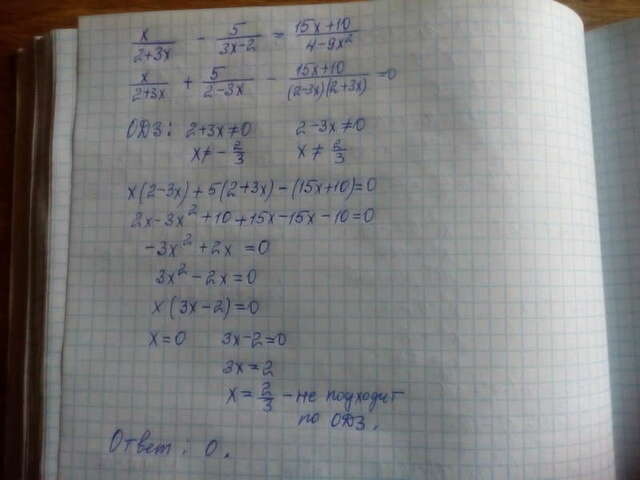 x/(2+3x) - 5/(3x-2) = (15x+10)/(4-9x²)
x/(2+3x) + 5/(2-3x) - (15x+10)/((2-3x)(2+3x)) =0
ОДЗ: 2+3x≠0 2-3x≠0
x≠-2/3 x≠2/3
x(2-3x)+5(2+3x)-(15x+10)=0
2x-3x²+10+15x-15x-10=0
-3x²+2x=0
3x²-2x=0
x(3x-2)=0
x=0 3x-2=0
3x=2
x=2/3 - не подходит
по ОДЗ.
Ответ: 0.